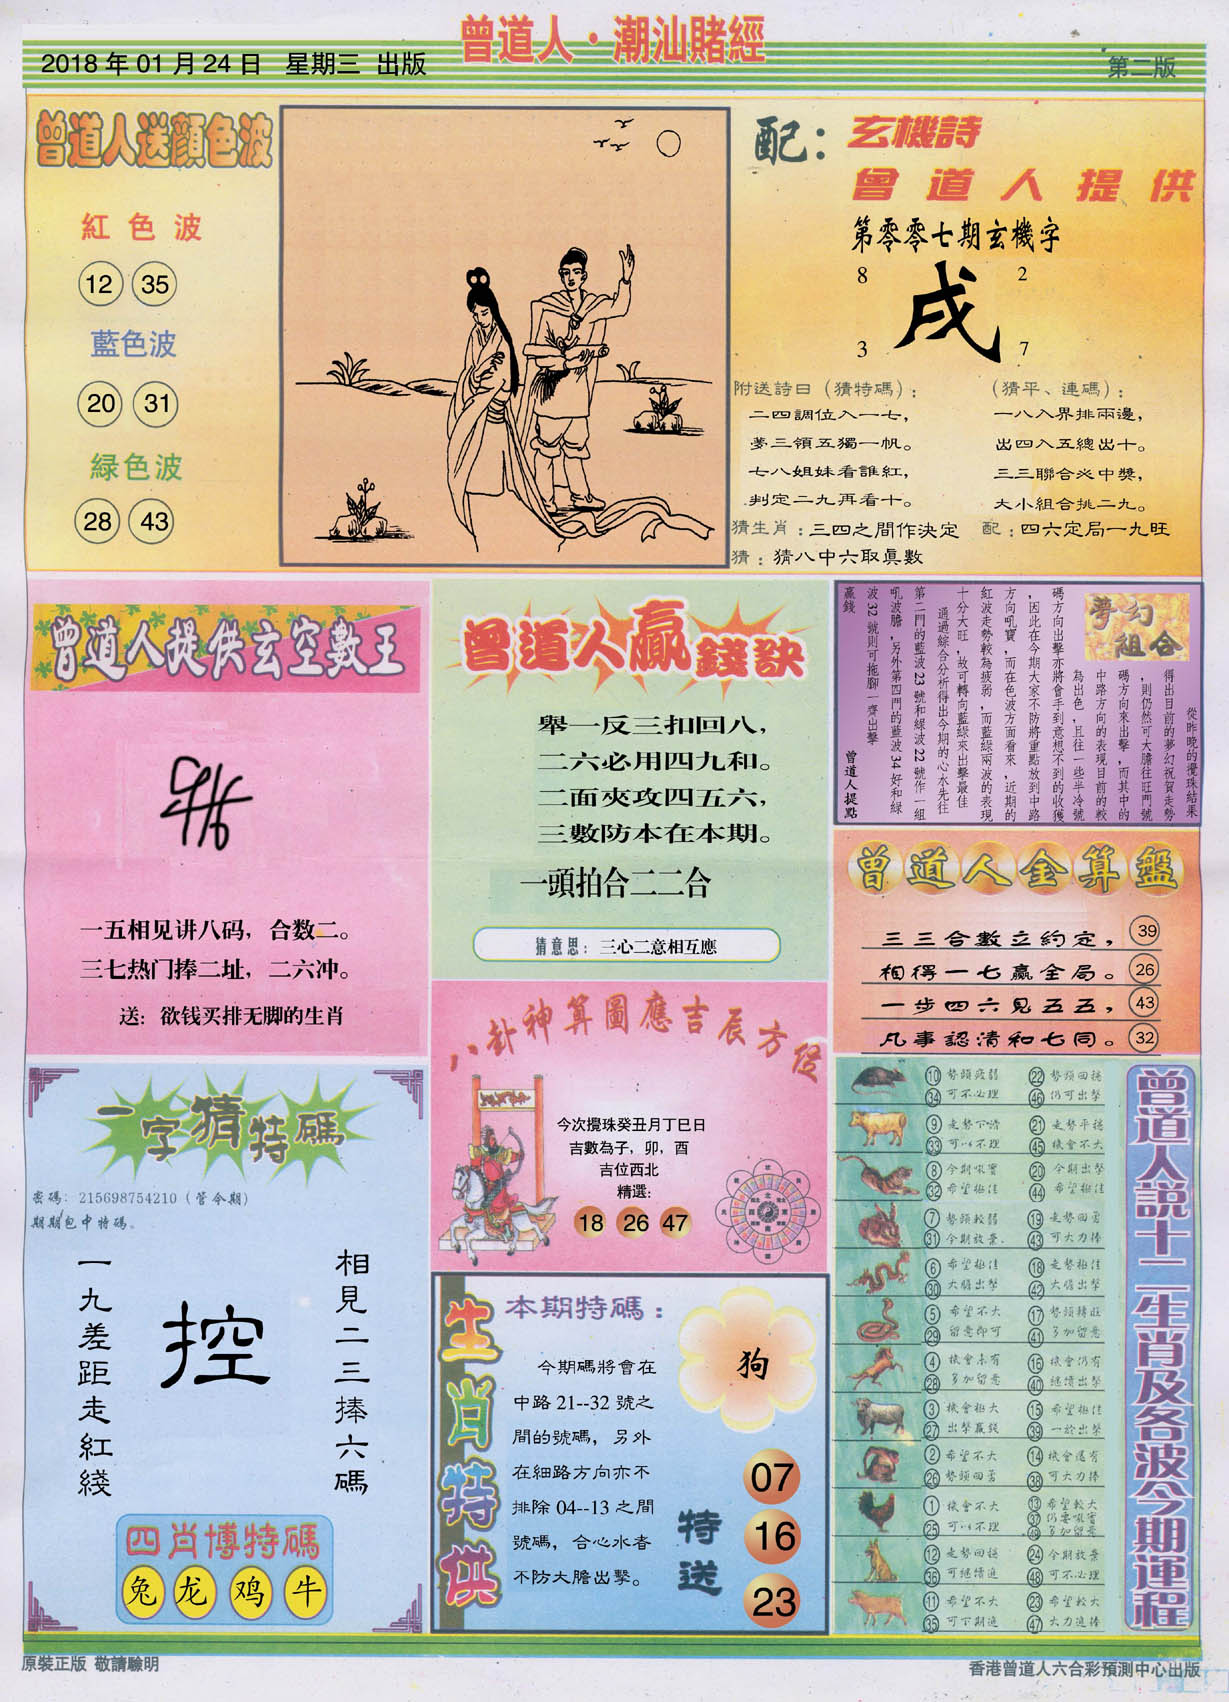 曾道人·潮汕賭經
2018年01月24日 星期三 出版
第二版
曾道人送顏色波
紅色波
12 35
藍色波
20 31
緑色波
28 43
配：玄機詩
曾道人提供
第零零七期玄機字
8 2
戌
3 7
附送詩曰（猜特碼）：
二四調位入一七，
夢三領五獨一帆。
七八姐妹看誰紅，
判定二九再看十。
（猜平、連碼）：
一八入界排兩邊，
出四入五總出十。
三三聯合必中獎，
大小組合挑二九。
猜生肖：三四之間作決定
配：四六定局一九旺
猜：猜八中六取眞數
曾道人提供玄空數王
一五相见讲八码，合数二。
三七热门捧二址，二六冲。
送：欲钱买排无脚的生肖
曾道人贏錢訣
舉一反三扣回八，
二六必用四九和。
二面夾攻四五六，
三數防本在本期。
一頭拍合二二合
猜意思：三心二意相互應
夢幻組合
從昨晚的攪珠結果
得出目前的夢幻祝賀走勢
，則仍然可大膽往旺門號
碼方向來出擊，而其中的
中路方向的表現目前的較
為出色，且往一些半冷號
碼方向出擊亦將會手到意想不到的收獲
，因此在今期大家不防將重點放到中路
方向吼寶，而在色波方面看來，近期的
紅波走勢較為疲弱，而藍綠兩波的表現
十分大旺，故可轉向藍綠來出擊最佳
通過綜合分析得出今期的心水先往
第二門的藍波23號和綠波22號作一組
吼波膽，另外第四門的藍波34好和綠
波32號則可拖腳一齊出擊
贏錢
曾道人提點
曾道人金算盤
三三合數立約定， 39
相得一七贏全局。 26
一步四六見五五， 43
凡事認清和七同。 32
八卦神算圖應吉辰方位
今次攪珠癸丑月丁巳日
吉數為子，卯，酉
吉位西北
精選：
18 26 47
一字猜特碼
密碼：215698754210（管今期）
期期包中特碼。
相見二三捧六碼
控
一九差距走紅綫
四肖博特碼
兔 龙 鸡 牛
生肖特供
本期特碼：
今期碼將會在
中路21--32號之
間的號碼，另外
在細路方向亦不
排除04--13之間
號碼，合心水者
不防大膽出擊。
狗
特送
07
16
23
曾道人説十二生肖及各波今期運程
10 勢頭疲弱 22 勢頭回穩
34 可不必理 46 仍可出擊
9 走勢下滑 21 走勢平穩
33 可以不理 45 機會不大
8 今期吼實 20 今期出擊
32 希望極佳 44 希望極佳
7 勢頭較弱 19 走勢回勇
31 今期放棄 43 可大力捧
6 希望極佳 18 走勢極佳
30 大膽出擊 42 大膽出擊
5 希望不大 17 勢頭轉旺
29 留意即可 41 多加留意
4 機會亦有 16 機會仍有
28 多加留意 40 繼續出擊
3 機會極大 15 希望極佳
27 出擊贏錢 39 一於出擊
2 希望不大 14 機會還有
26 勢頭回勇 38 可大力捧
1 機會不大 13 希望較大
25 可以不理 37 仍要吼實
49 多加留意
12 走勢回穩 24 今期放棄
36 可繼續追 48 可不必理
11 希望不大 23 希望較大
35 可下期追 47 大力追捧
原裝正版 敬請驗明
香港曾道人六合彩預測中心出版